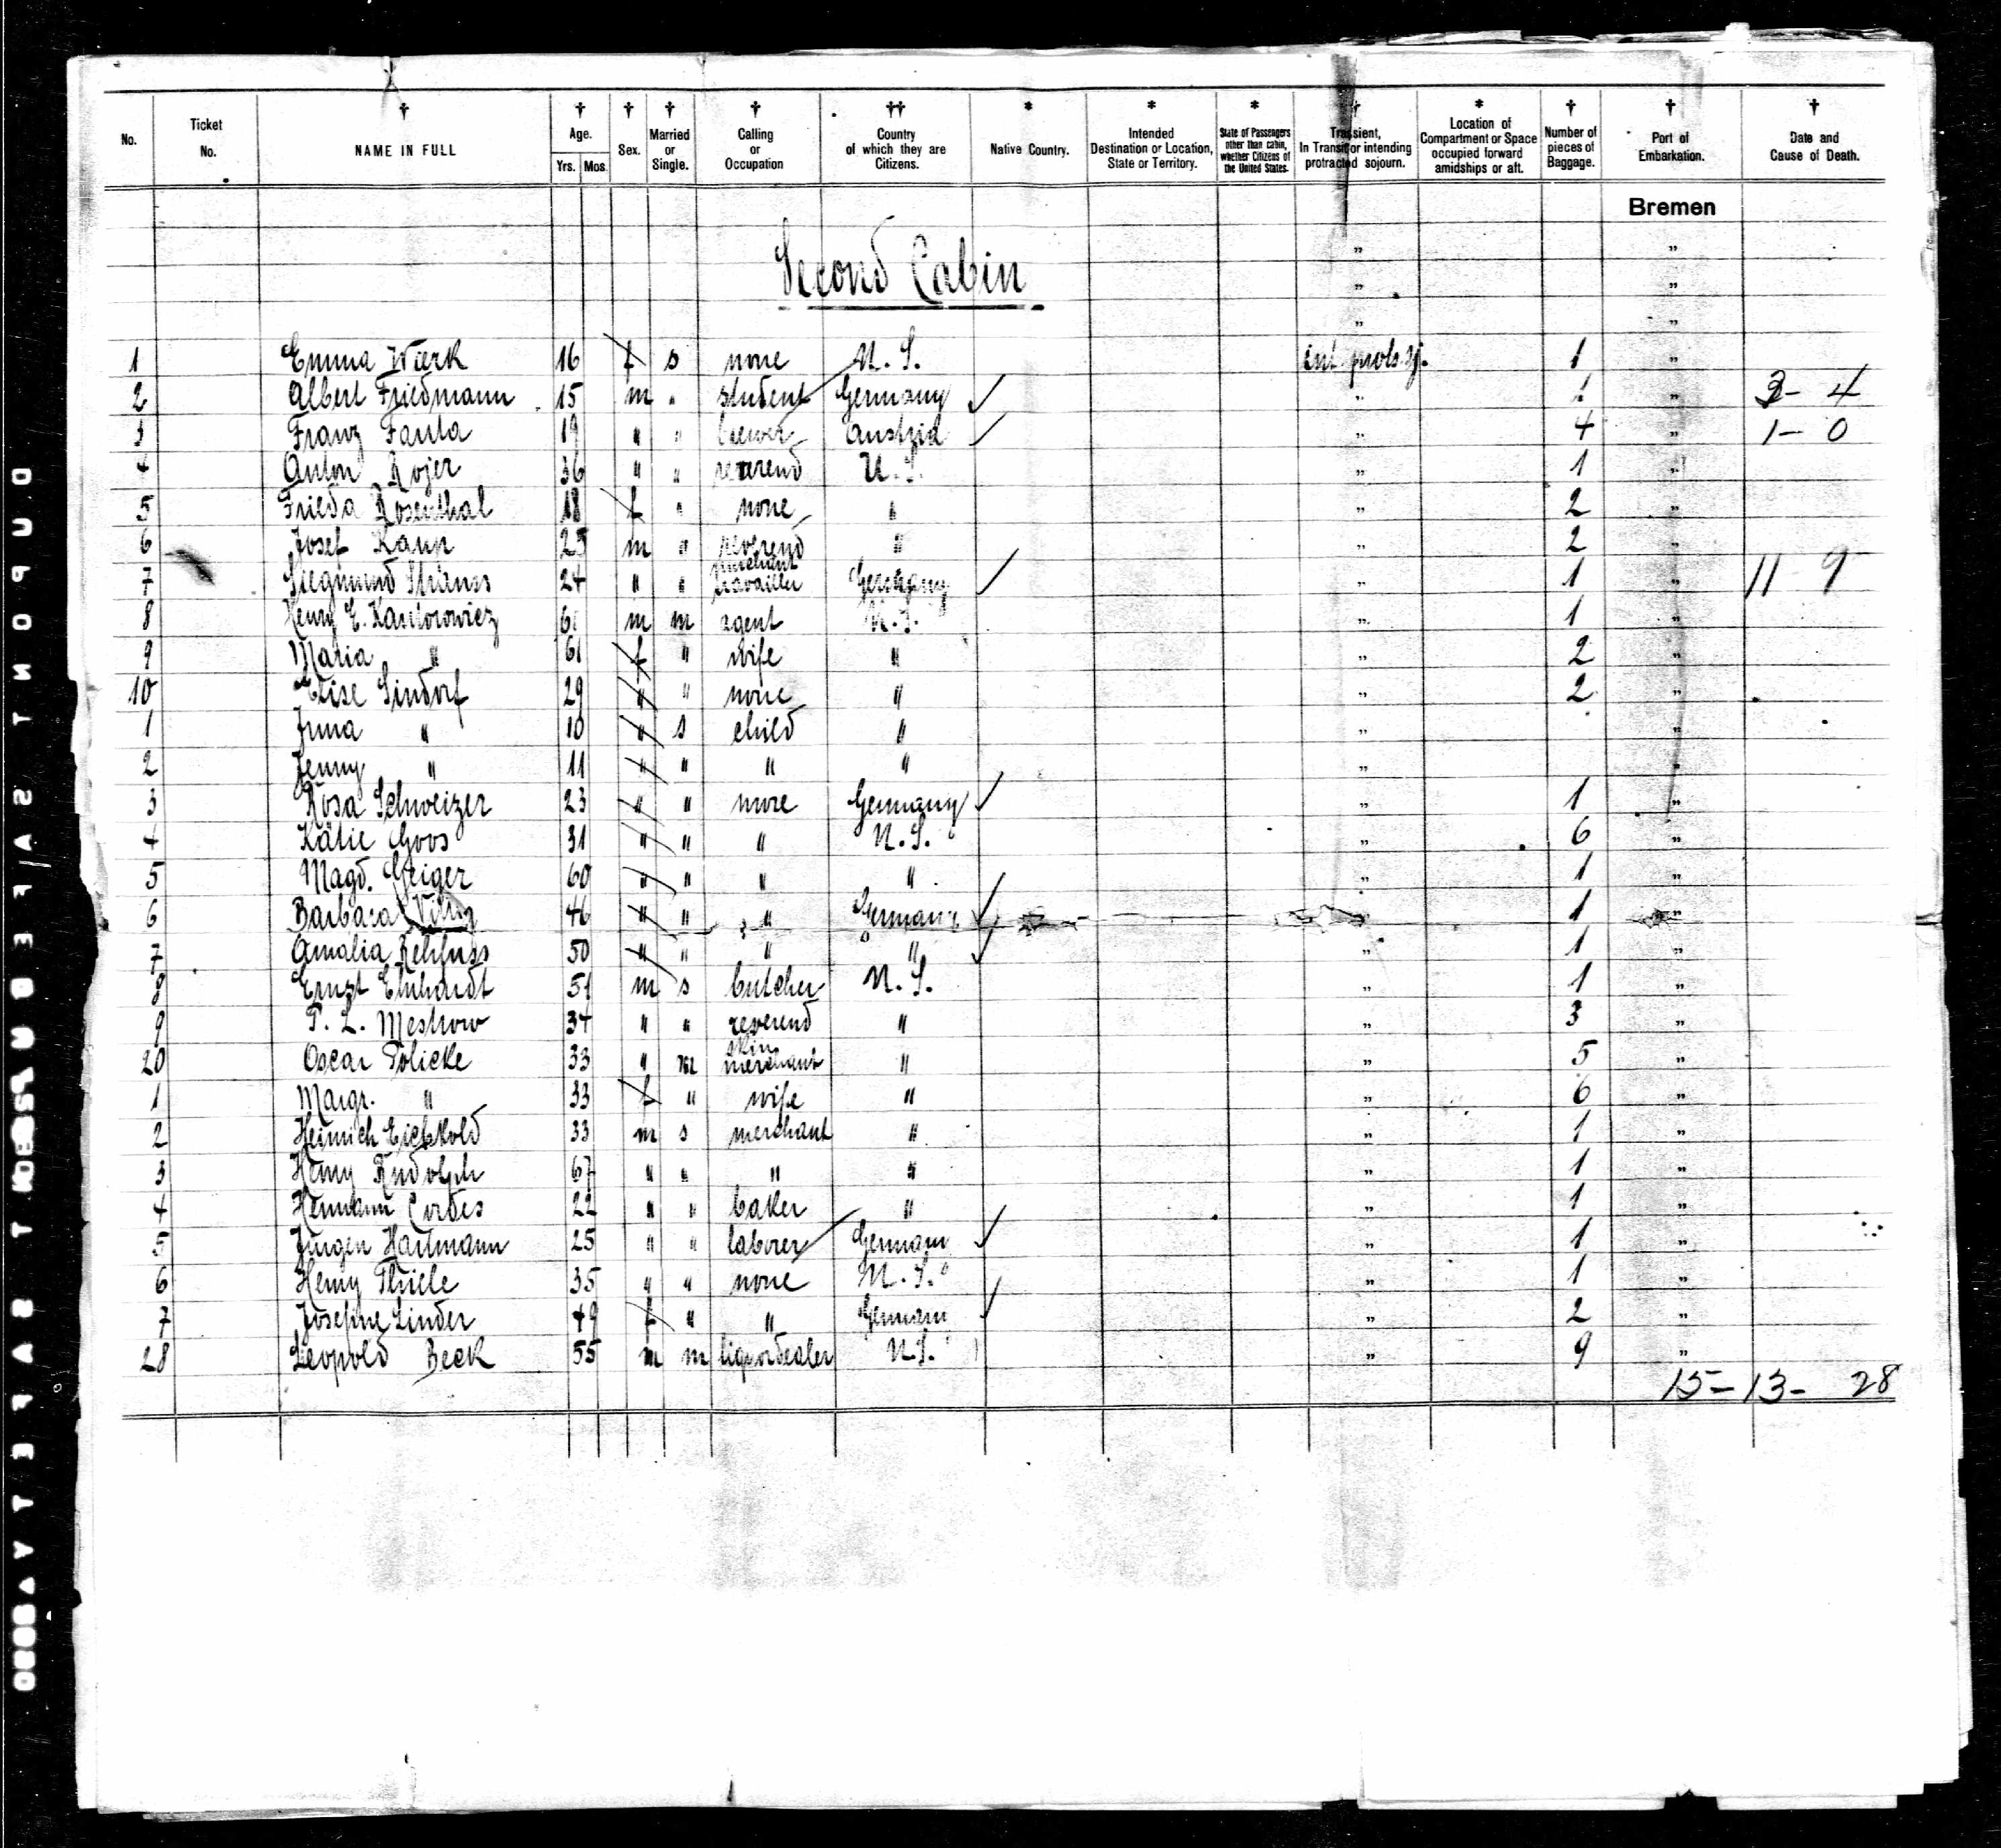 No. Ticket No. † NAME IN FULL † Age. Yrs. Mos. † Sex. † Married or Single. † Calling or Occupation †† Country of which they are Citizens. * Native Country. * Intended Destination or Location, State or Territory. * State of Passengers other than cabin, whether Citizens of the United States. † Transient, In Transit or intending protracted sojourn. * Location of Compartment or Space occupied forward amidships or aft. † Number of pieces of Baggage. † Port of Embarkation. † Date and Cause of Death.
Bremen
Second Cabin
1 Emma Wierk 16 f s none U. S. 1 "
2 Albert Friedmann 15 m " student Germany ✓ " 1 " 3- 4
3 Franz Fanta 19 " " Austria ✓ " 4 " 1- 0
4 Anton Rojer 36 " " reverend U. S. " 1 "
5 Frieda Rosenthal 18 f " none " " 2 "
6 Josef m " reverend " " 2 "
7 Siegmund Strauss 24 " " merchant Germany ✓ " 1 " 11 9
8 Henry E. Kantorowicz m m agent U. S. " 1 "
9 Maria " 61 f " wife " " 2 "
10 Elise Lindorf 29 " " none " " 2 "
1 " 10 " s child " " "
2 Jenny " 11 " " " " " "
3 Rosa Schweizer 23 " " none Germany ✓ " 1 "
4 Kätie Goos 31 " " " U. S. " 6 "
5 Magd. Geiger 60 " " " " " 1 "
6 Barbara 46 " " " Germany ✓ " 1 "
7 Amalia Rehfuss 50 " " " " ✓ " 1 "
8 Ernst Ehrhardt 51 m s butcher U. S. " 1 "
9 P. L. Meshow 34 " " reverend " " 3 "
20 Oscar Pölicke 33 " m skin merchant " " 5 "
1 Margr. " 33 f " wife " " 6 "
2 Heinrich 33 m s merchant " " 1 "
3 Henry Rudolph 67 " " " " " 1 "
4 Hermann Cordes 22 " " baker " " 1 "
5 Jürgen Hartmann 25 " " laborer Germany ✓ " 1 "
6 Henry Thiele 35 " " none U. S. " 1 "
7 Josefine Linder 49 f " " Germany ✓ " 2 "
28 Leopold Beck 55 m m liquordealer U. S. " 9 "
15- 13- 28